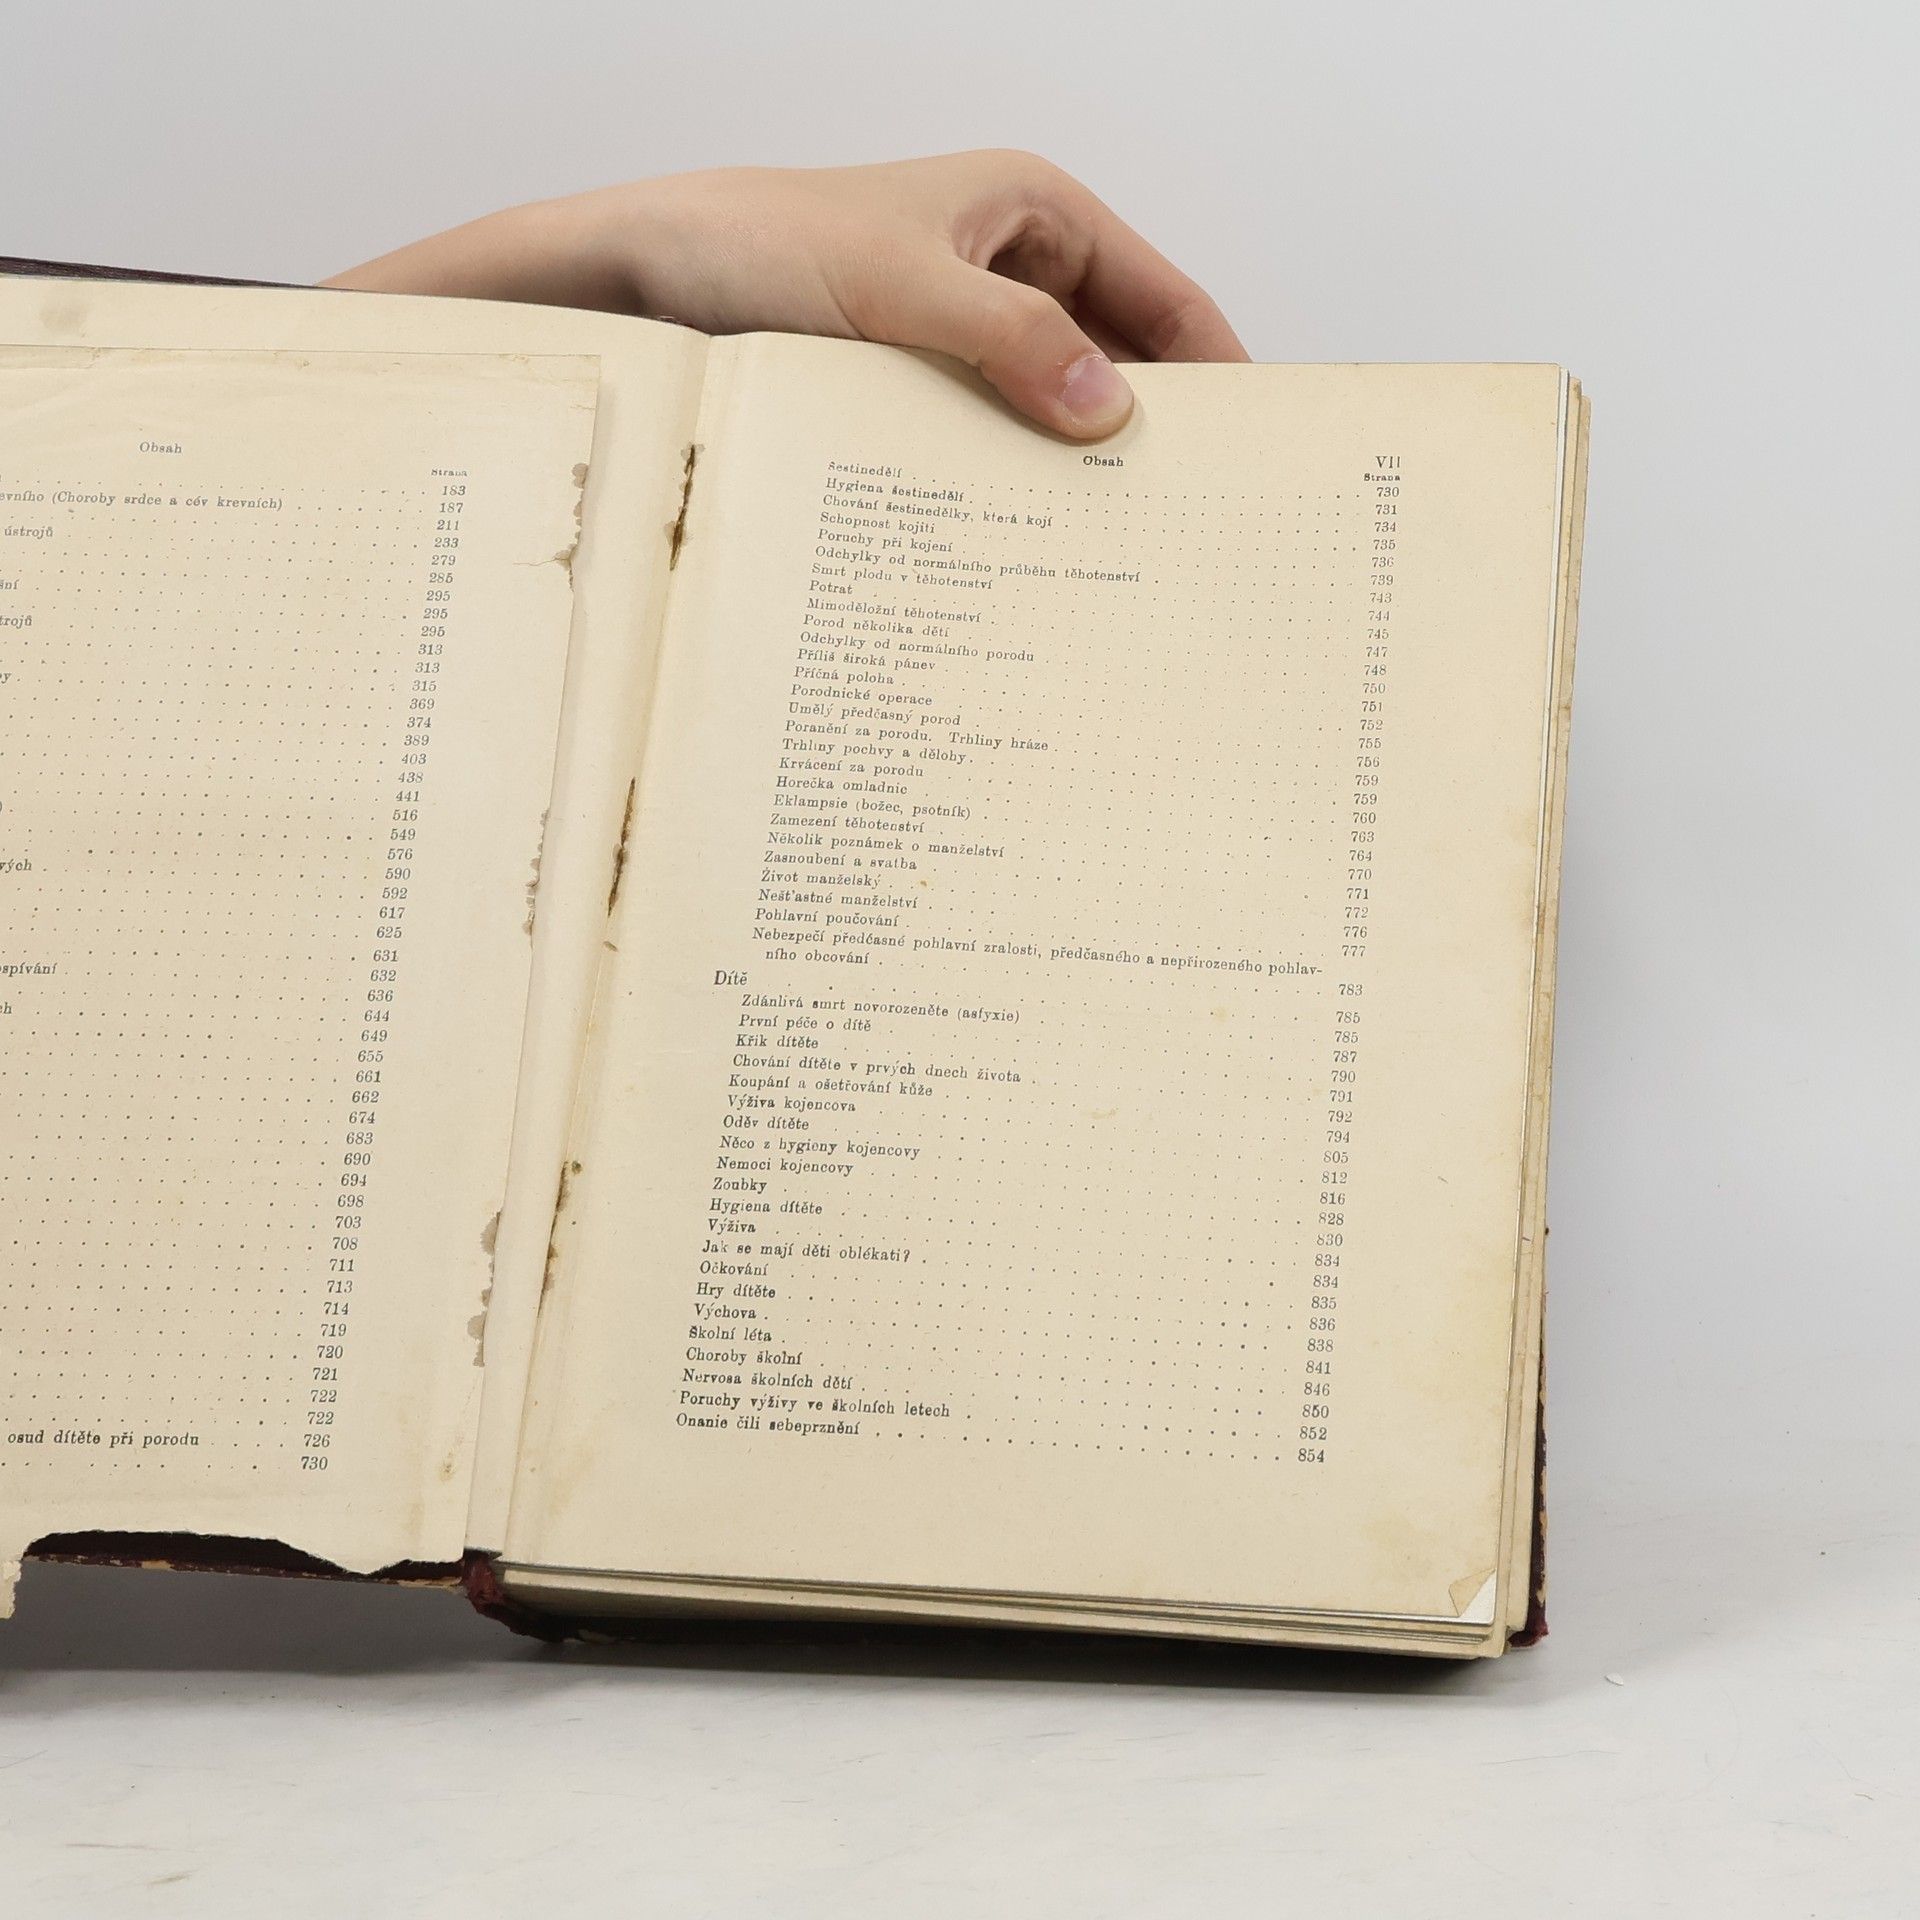 Obsah
Strana
183
evního (Choroby srdce a cév krevních) 187
211
ústrojů 233
279
285
šní 295
295
trojů 295
313
313
y 315
369
374
389
403
438
441
) 516
549
576
vých 590
592
617
625
631
ospívání 632
636
ch 644
649
655
661
662
674
683
690
694
698
703
708
711
713
714
719
720
721
722
722
osud dítěte při porodu 726
730
Obsah VII
Strana
Šestinedělí 730
Hygiena šestinedělí 731
Chování šestinedělky, která kojí 734
Schopnost kojiti 735
Poruchy při kojení 736
Odchylky od normálního průběhu těhotenství 739
Smrt plodu v těhotenství 743
Potrat 744
Mimoděložní těhotenství 745
Porod několika dětí 747
Odchylky od normálního porodu 748
Příliš široká pánev 750
Příčná poloha 751
Porodnické operace 752
Umělý předčasný porod 755
Poranění za porodu. Trhliny hráze 756
Trhliny pochvy a dělohy 759
Krvácení za porodu 759
Horečka omladnic 760
Eklampsie (božec, psotník) 763
Zamezení těhotenství 764
Několik poznámek o manželství 770
Zasnoubení a svatba 771
Život manželský 772
Nešťastné manželství 776
Pohlavní poučování 777
Nebezpečí předčasné pohlavní zralosti, předčasného a nepřirozeného pohlav-
ního obcování 783
Dítě 785
Zdánlivá smrt novorozeněte (asfyxie) 785
První péče o dítě 787
Křik dítěte 790
Chování dítěte v prvých dnech života 791
Koupání a ošetřování kůže 792
Výživa kojencova 794
Oděv dítěte 805
Něco z hygieny kojencovy 812
Nemoci kojencovy 816
Zoubky 828
Hygiena dítěte 830
Výživa 834
Jak se mají děti oblékati? 834
Očkování 835
Hry dítěte 836
Výchova 838
Školní léta 841
Choroby školní 846
Nervosa školních dětí 850
Poruchy výživy ve školních letech 852
Onanie čili sebeprznění 854